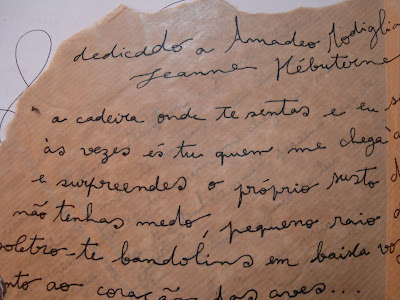 dedicado a Amadeo Modiglia
Jeanne Hébuterne
a cadeira onde te sentas e eu s
às vezes és tu quem me chega a
e surpreendes o próprio susto d
não tenhas medo, pequeno raio d
soletro-te bandolins em baixa vo
nto ao coração das aves...